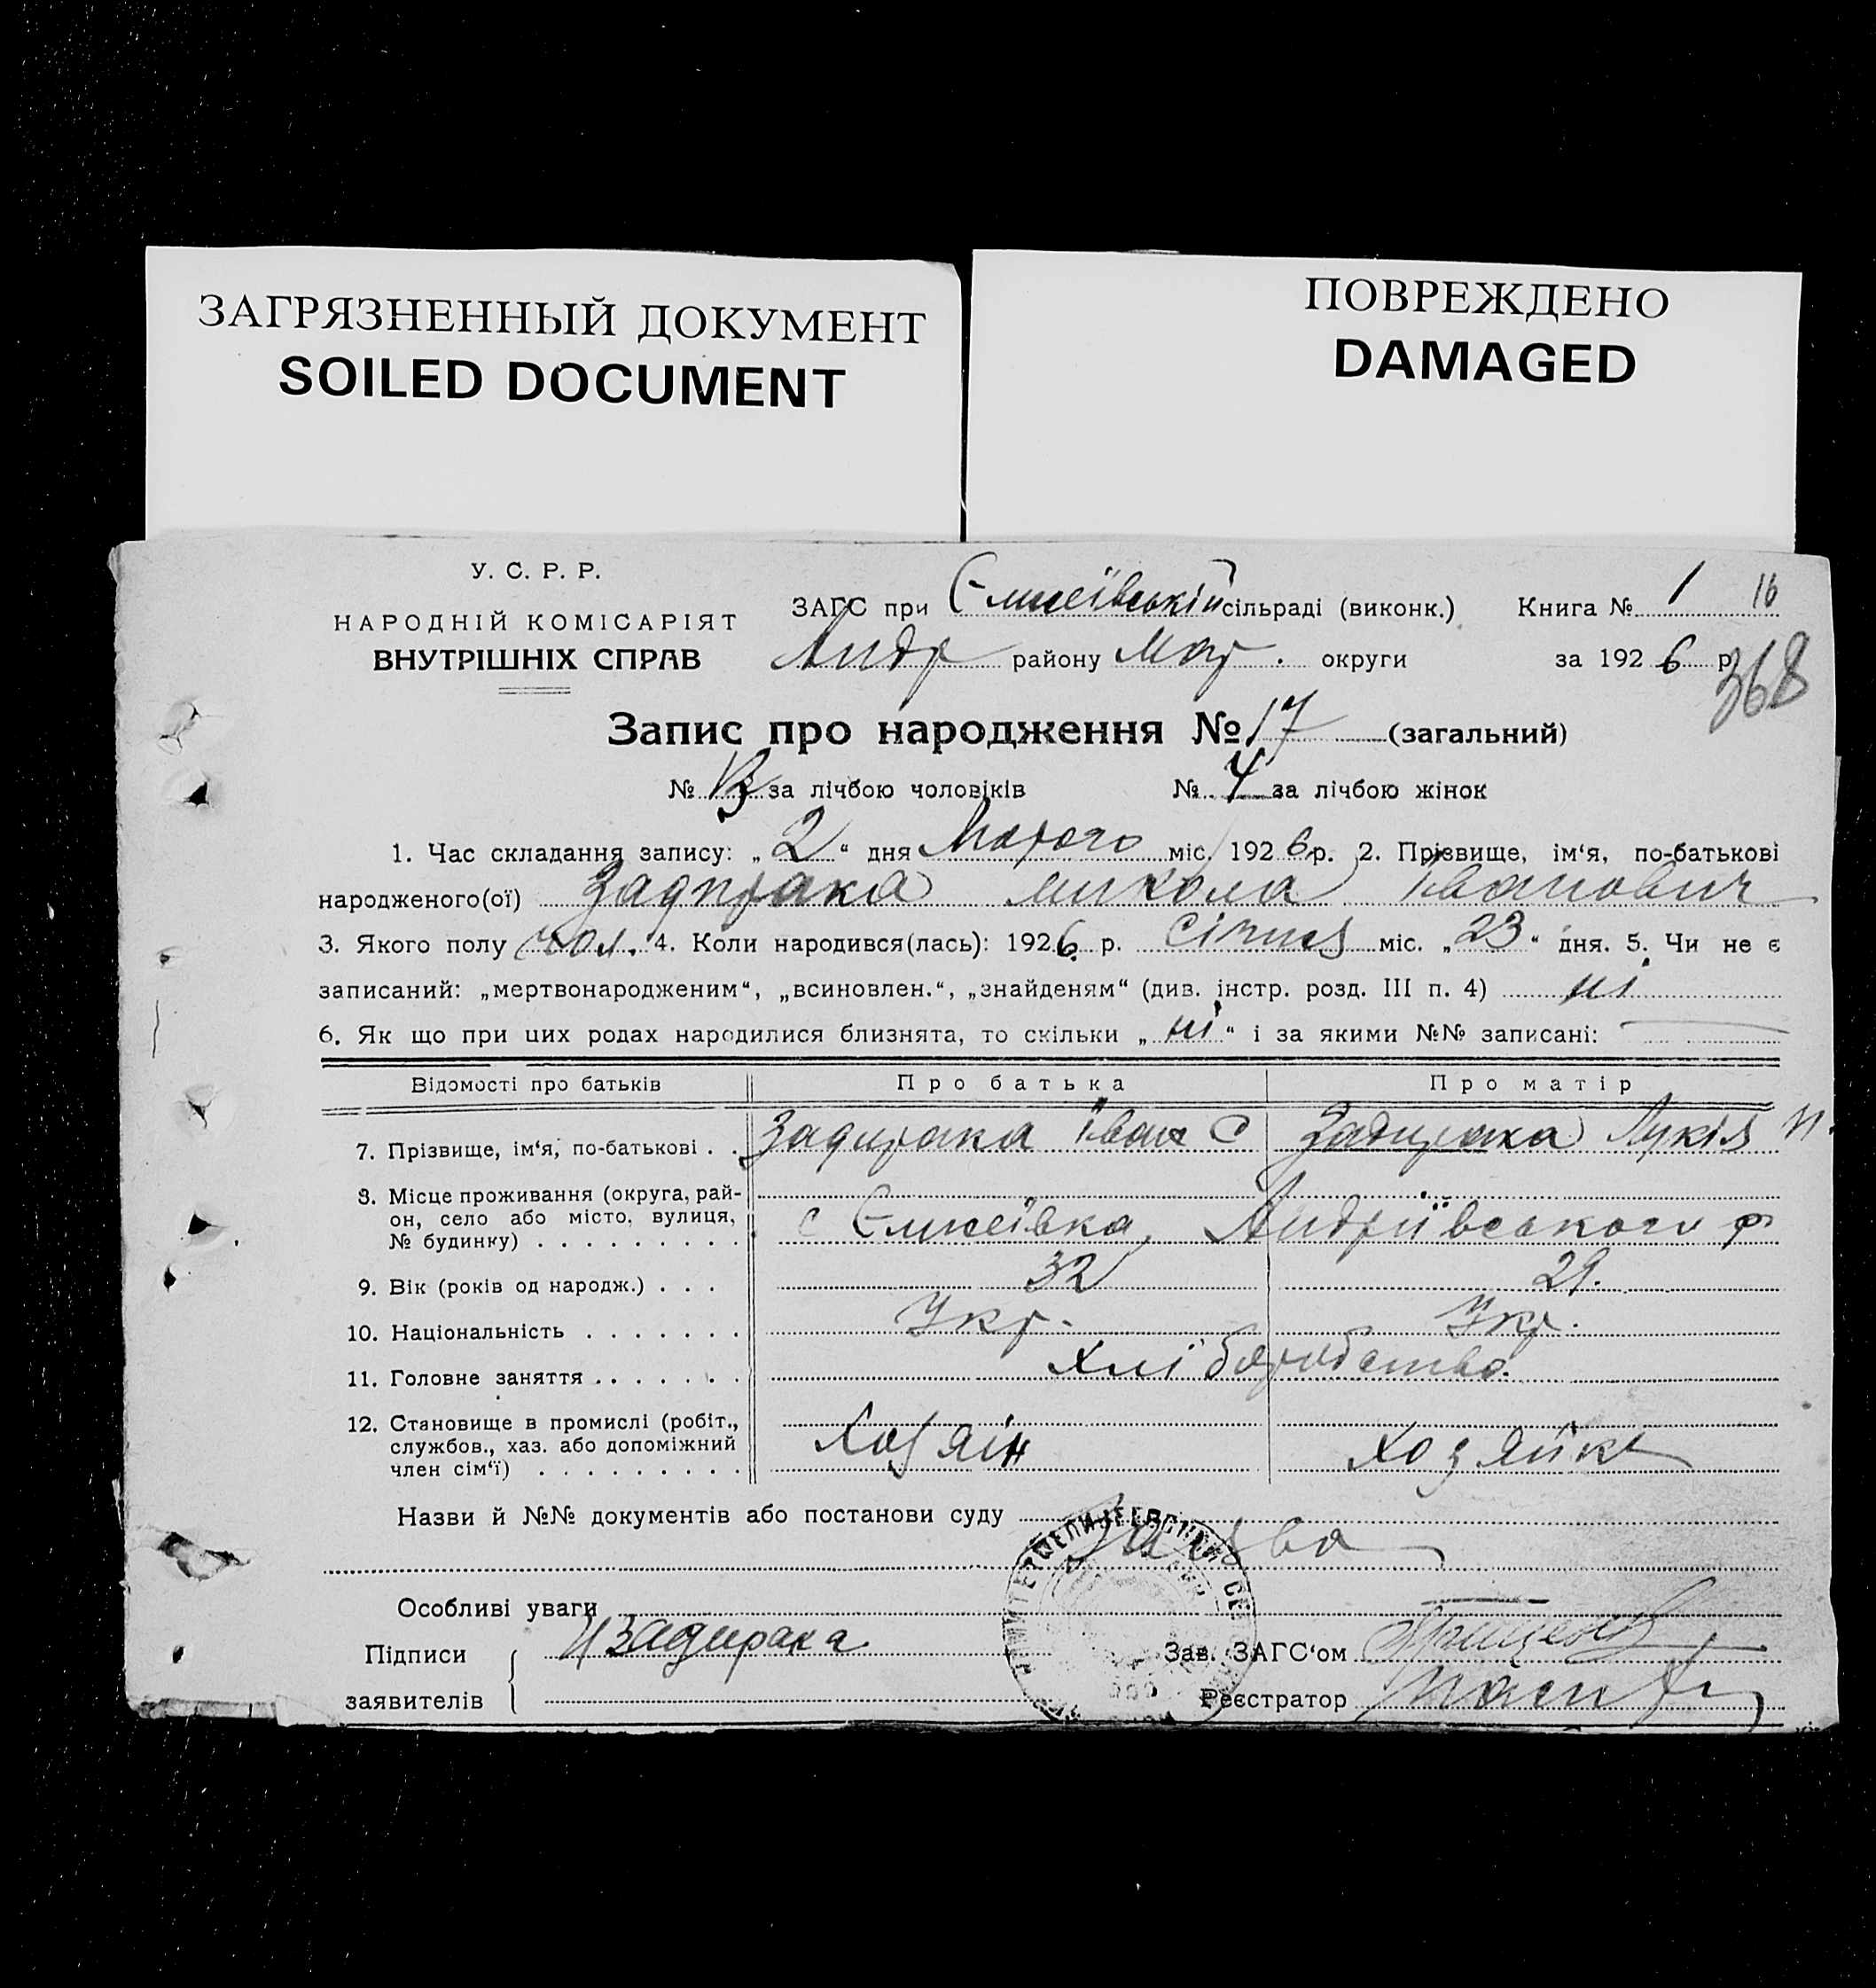 ЗАГРЯЗНЕННЫЙ ДОКУМЕНТ
SOILED DOCUMENT
ПОВРЕЖДЕНО
DAMAGED
У. С. Р. Р.
НАРОДНІЙ КОМІСАРІЯТ
ВНУТРІШНІХ СПРАВ
ЗАГС при сільраді (виконк.) Книга № 1 16
Андр району Мар. округи за 1926 р 368
Запис про народження № 17 (загальний)
№ 13 за лічбою чоловіків № 4 за лічбою жінок
1. Час складання запису: „2“ дня Лютого міс. 1926 р. 2. Прізвище, ім‘я, по-батькові
народженого(ої) Задирака Микола Іванович
3. Якого полу чол. 4. Коли народився(лась): 1926 р. Січня міс. „23“ дня. 5. Чи не є
записаний: „мертвонародженим“, „всиновлен.“, „знайденям“ (див. інстр. розд. III п. 4) ні
6. Як що при цих родах народилися близнята, то скільки „ні“ і за якими №№ записані:
Відомості про батьків Про батька Про матір
7. Прізвище, ім‘я, по-батькові . . Задирака Іван С Задирака Лукія
8. Місце проживання (округа, рай-
он, село або місто, вулиця,
№ будинку) . . . . . . . . . с Андріївського р
9. Вік (років од народж.) . . . 32 29.
10. Національність . . . . . . . Укр. Укр.
11. Головне заняття . . . . . . . Хліборобство.
12. Становище в промислі (робіт.,
службов., хаз. або допоміжний
член сім‘ї) . . . . . . . . . Хозяін Хозяйка
Назви й №№ документів або постанови суду
Заява
Особливі уваги
Підписи И Задирака Зав. ЗАГС‘ом
заявителів Реєстратор